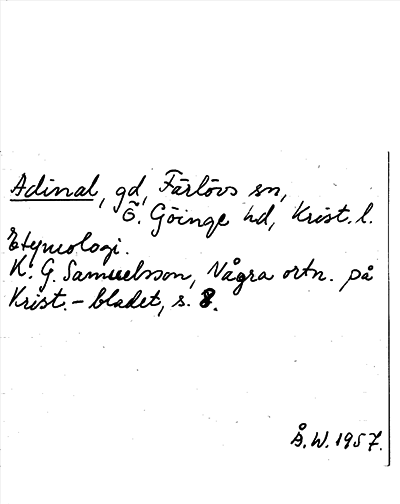 Adinal, gd, Färlövs sn,
Ö. Göinge hd, Krist. l.
Etymologi.
K. G. Samuelsson, Några ortn. på
Krist.-bladet, s. 8.
Å. W. 1957.